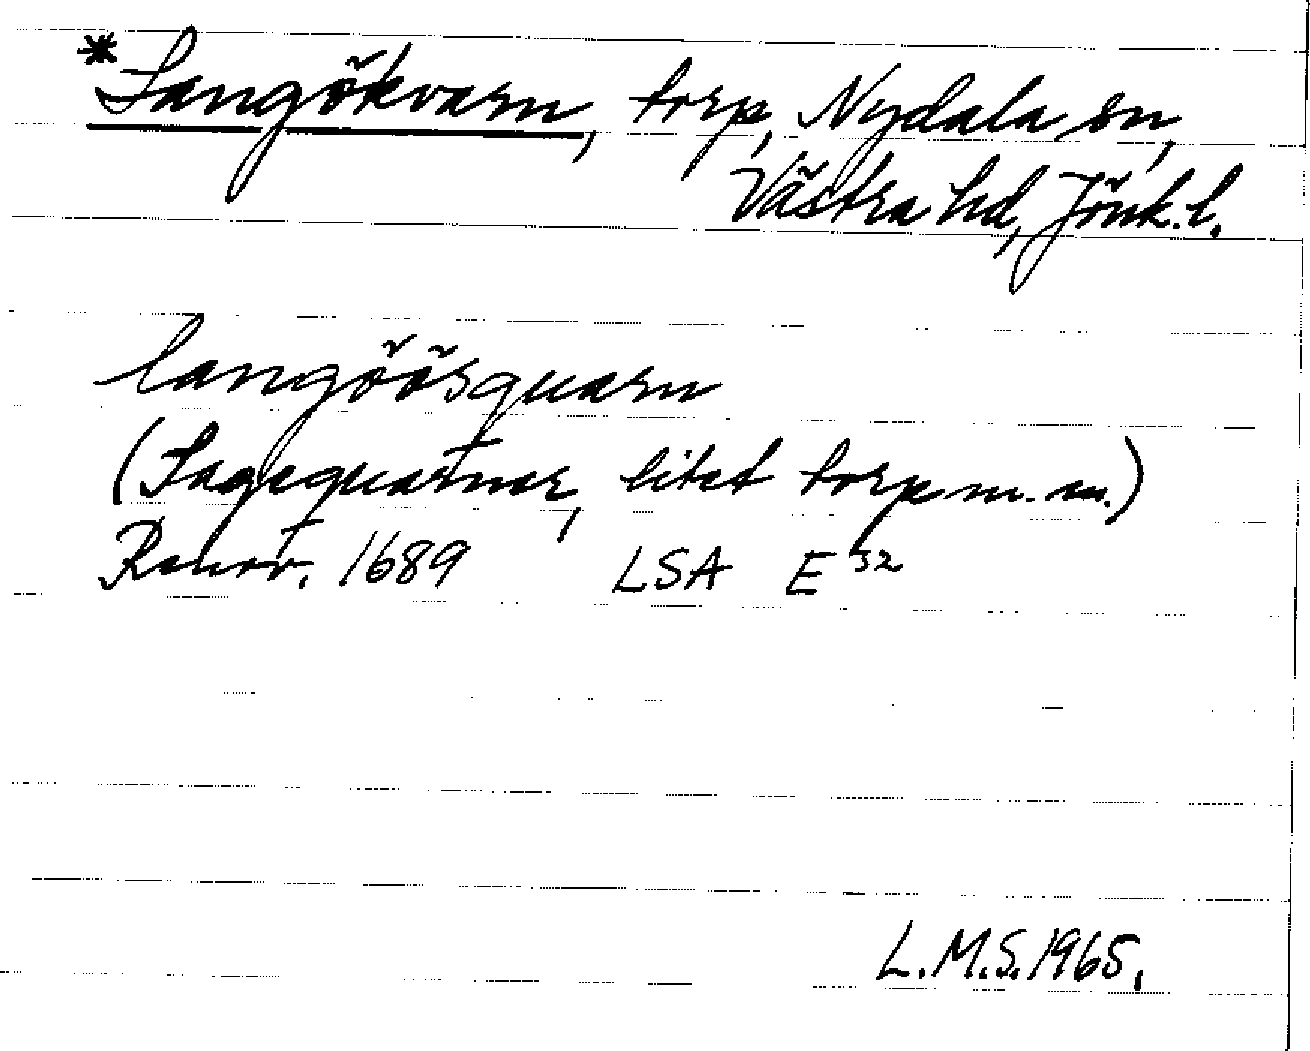 *Langökvarn, torp, Nydala sn,
Västra hd, Jönk. l.
langöösquarn
(Sagequarnar, litet torp m. m.)
Renov. 1689 LSA E 32
L.M.S. 1965.